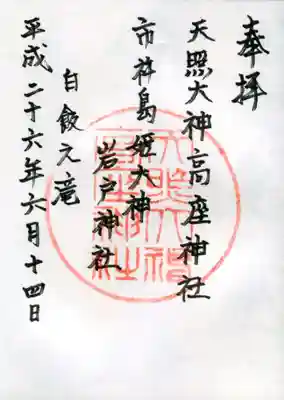 奉拝
天照大神高座神社
市杵島姫大神
岩戸神社
白飯之滝
平成二十六年六月十四日